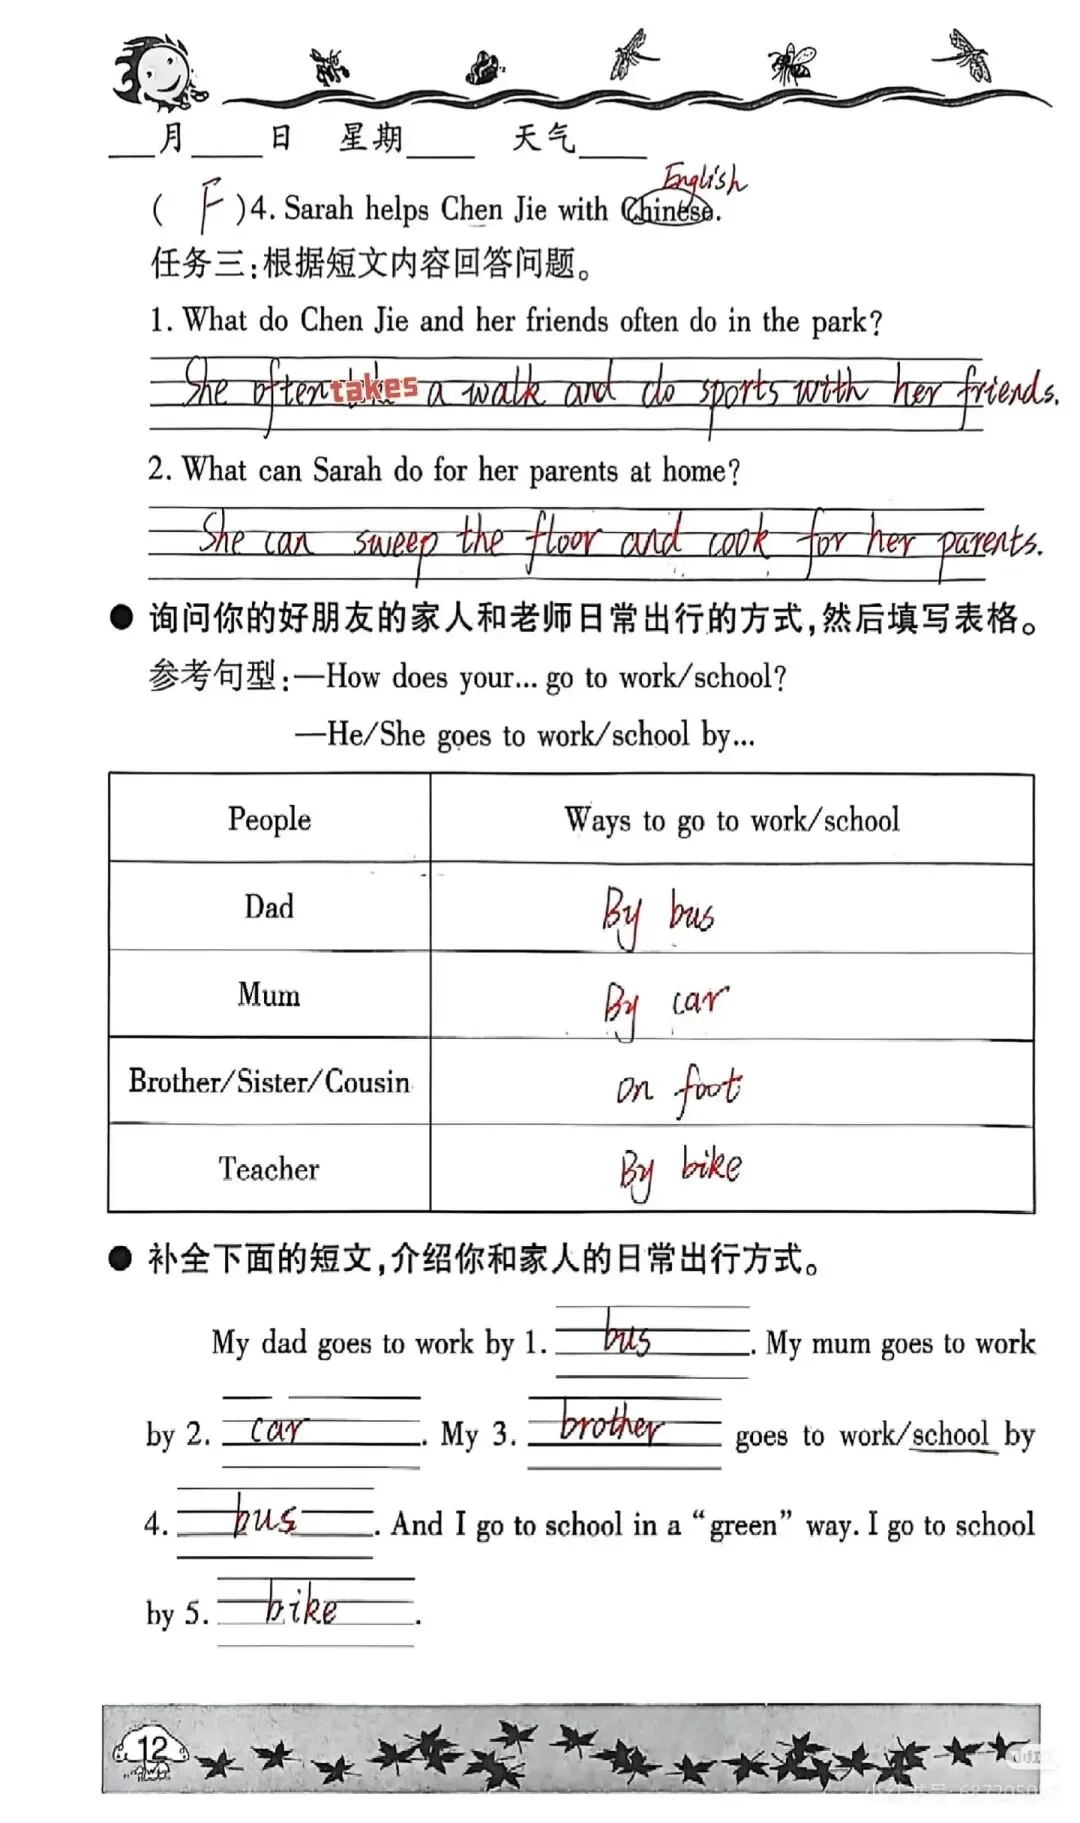 月 日 星期 天气
English
( F )4. Sarah helps Chen Jie with Chinese.
任务三:根据短文内容回答问题。
1. What do Chen Jie and her friends often do in the park?
She often takes a walk and do sports with her friends.
2. What can Sarah do for her parents at home?
She can sweep the floor and cook for her parents.
● 询问你的好朋友的家人和老师日常出行的方式,然后填写表格。
参考句型:—How does your... go to work/school?
—He/She goes to work/school by...
People Ways to go to work/school
Dad By bus
Mum By car
Brother/Sister/Cousin on foot
Teacher By bike
● 补全下面的短文,介绍你和家人的日常出行方式。
My dad goes to work by 1. bus. My mum goes to work
by 2. car. My 3. brother goes to work/school by
4. bus. And I go to school in a “green” way. I go to school
by 5. bike.
12